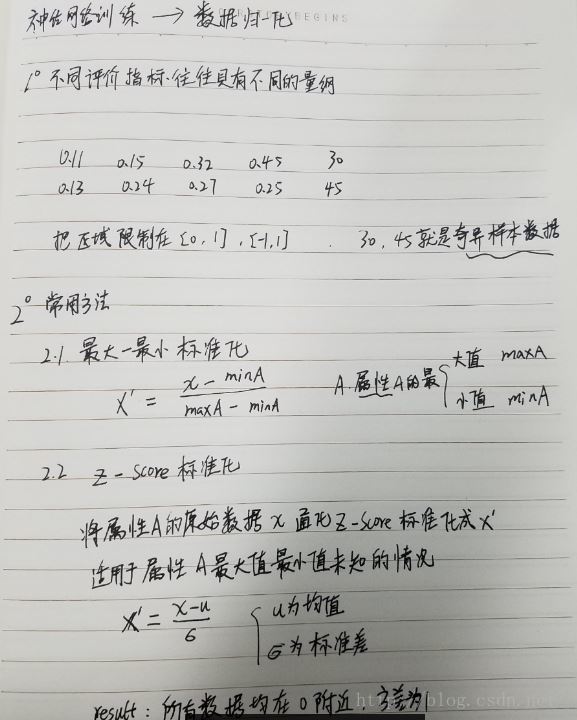 神经网络训练 → 数据归一化
1° 不同评价指标往往具有不同的量纲
0.11 0.15 0.32 0.45 30
0.13 0.24 0.27 0.25 45
把区域限制在 [0,1],[-1,1] . 30,45就是奇异样本数据
2° 常用方法
2.1 最大-最小标准化
X' = (x - minA) / (maxA - minA) A.属性A的最 { 大值 maxA
小值 minA
2.2 Z-score 标准化
将属性A的原始数据x通化Z-score标准化成X'
适用于属性A最大值最小值未知的情况
X' = (x-u) / σ { u为均值
σ为标准差
result: 所有数据均在0附近,方差为1